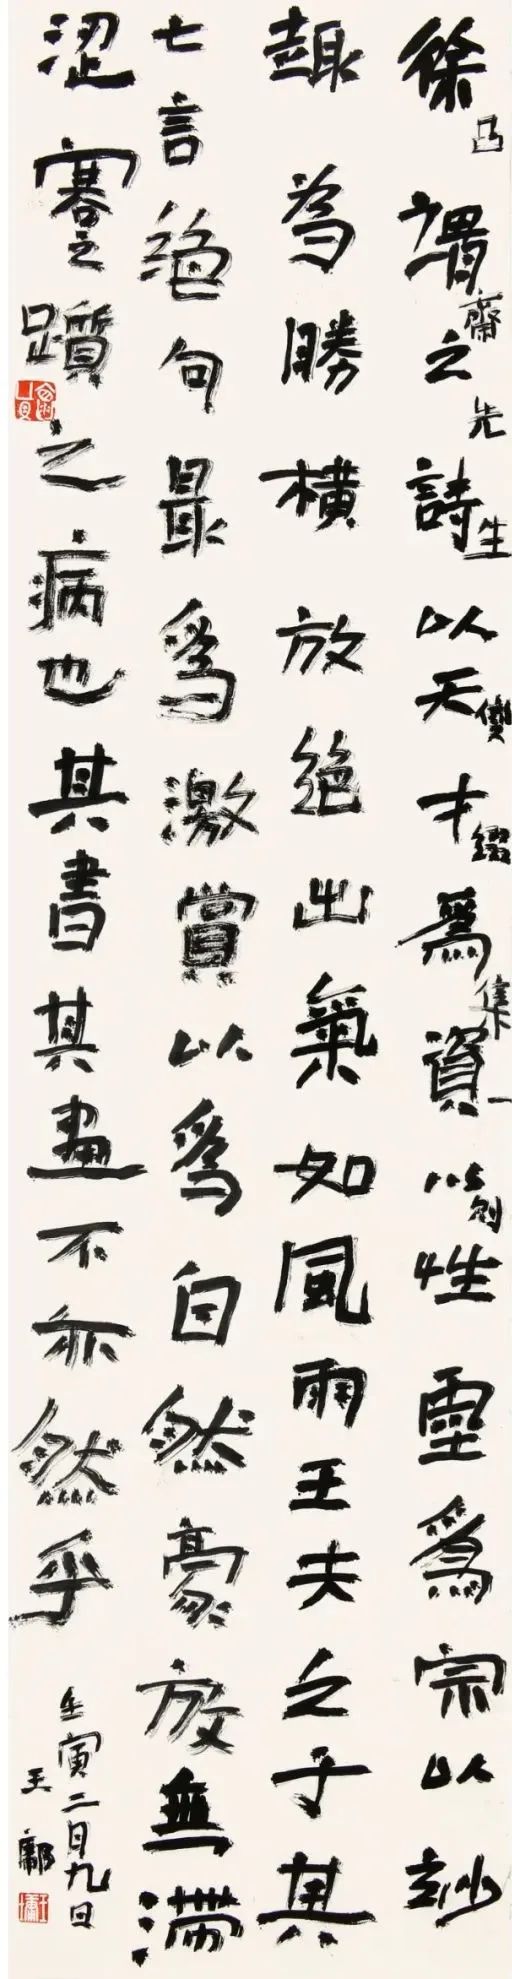 徐渭之詩以天才爲資以性靈爲宗以妙
齋先生集一則
趣為勝横放絶出氣如風雨王夫之于其
七言絶句最爲激賞以爲自然豪放無滯
涩蹇躓之病也其書其畫不亦然乎
壬寅二月九日
王